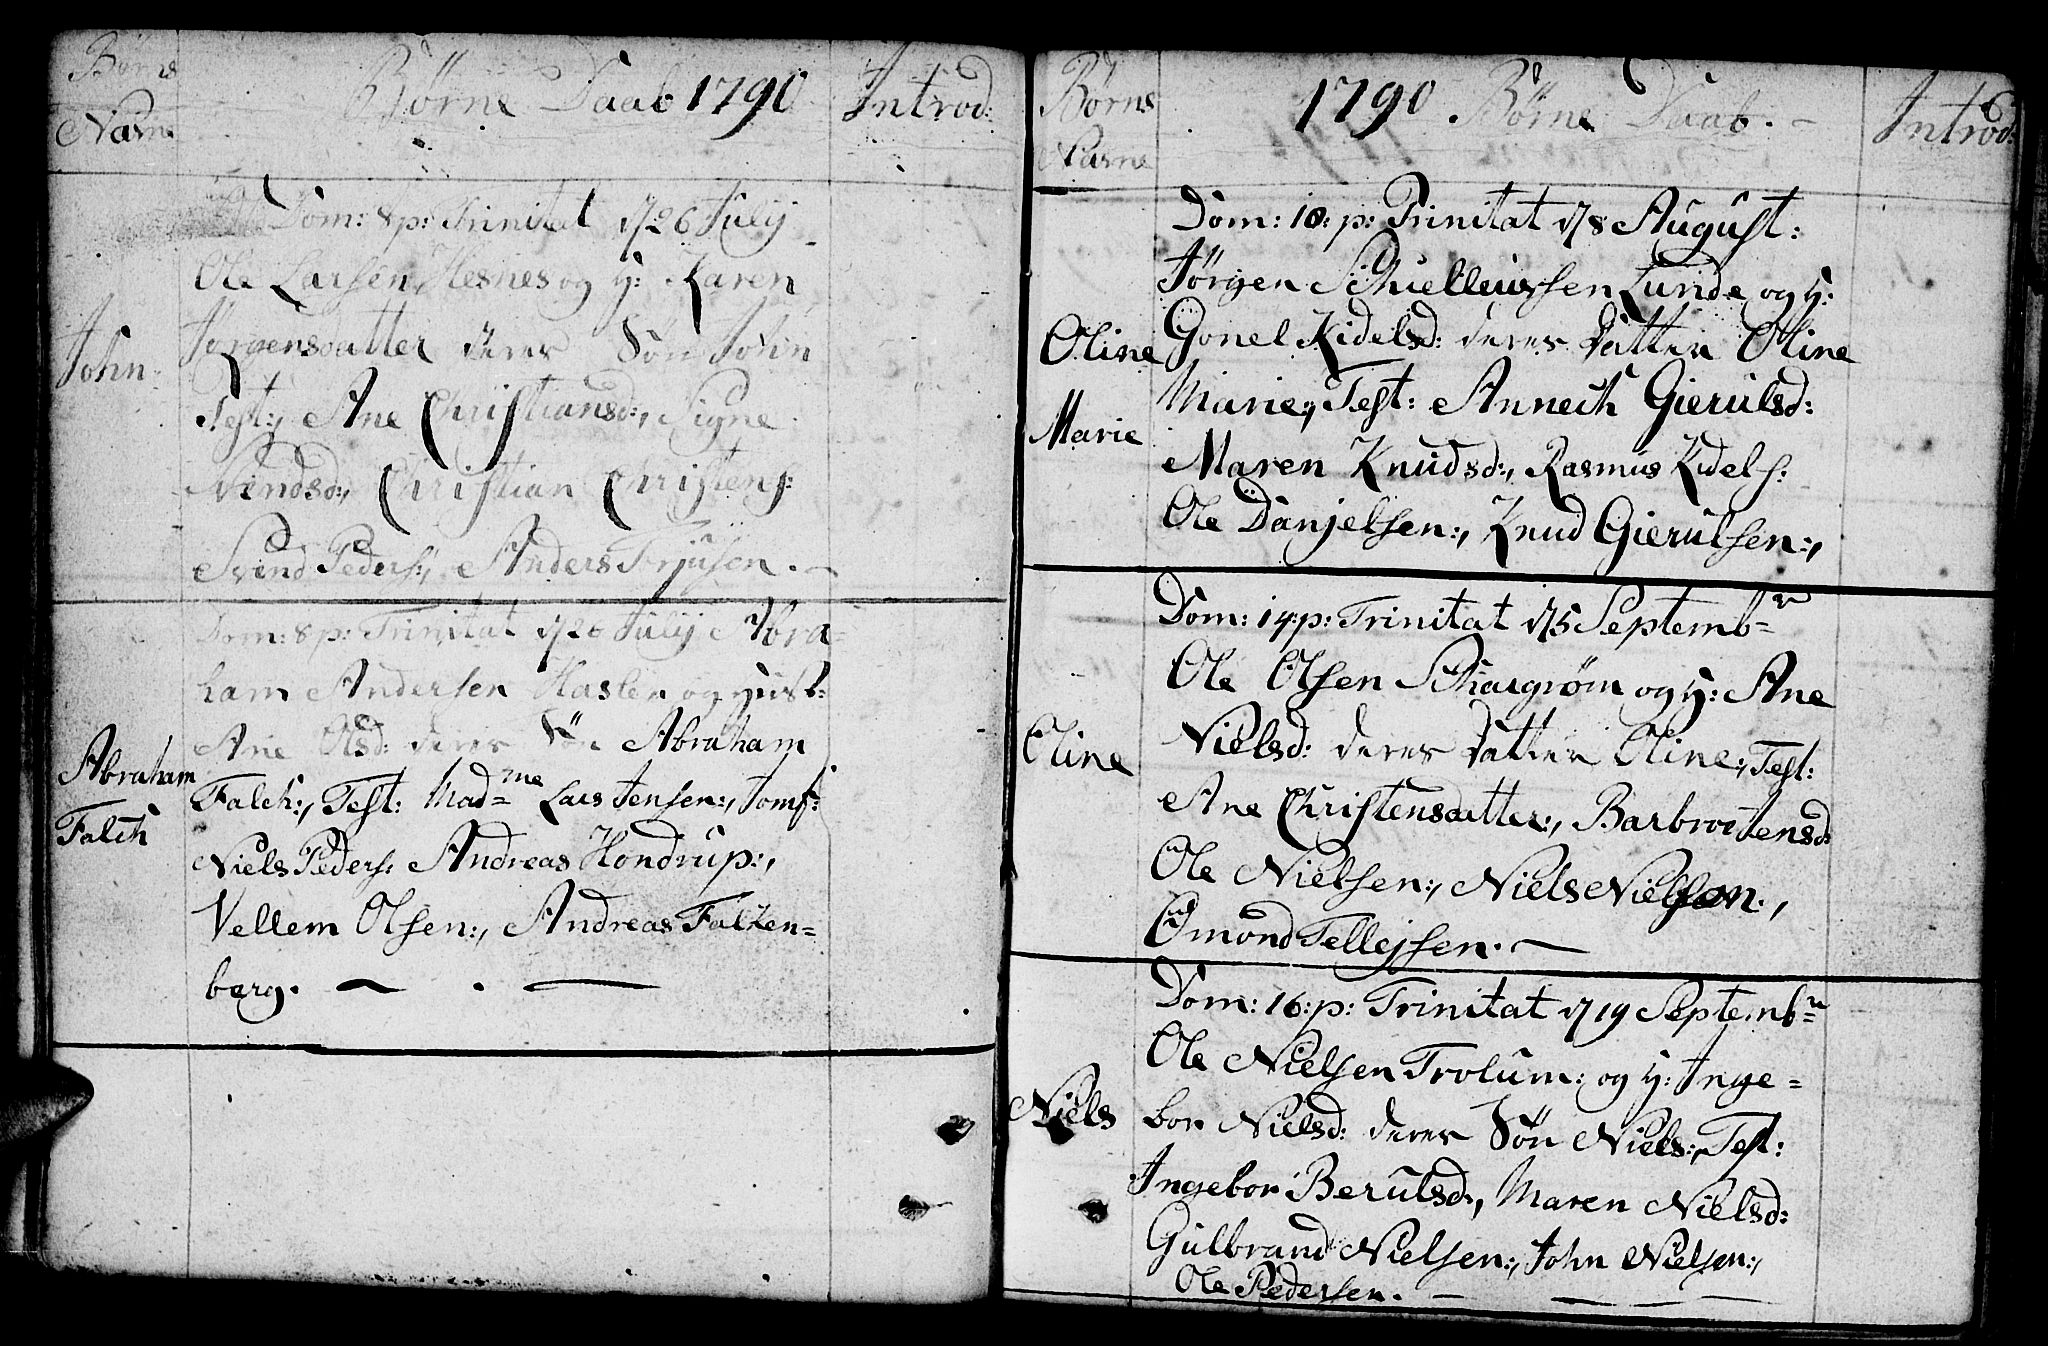 Börns
Navne
Börne Daab 1790
Introd:
Dom: 8 p: Trinitat d 26 Julij
Ole Larsen Hesnes og H: Karen
Jörgensdatter deres Sön John
John
Test:, Ane Christiansd:, Signe
Svendsd:, Christian Christens:
Svend Peders:, Anders Terjusen. –
Dom: 8 p: Trinitat d 26 Julij Abra=
ham Andersen Hasler og Hust:
Ane Olsd: deres Sön Abraham
Abraham
Falch
Falch:, Test: Mad=me Lars Jensen:, Jomf:
Niels Peders: Andreas Hondrup:,
Vellem Olsen:, Andreas Falken=
berg. — . —
Börns
Navne
1790 Börne Daab. –
Introd:
Dom: 10: p: Trinitat d 8 August:
Jörgen Schielleussen Lunde og H:
Oline
Marie
Gonel Kidelsd: deres Datter Oline
Marie:, Test: Annech Gierulsd:
Maren Knudsd:, Rasmus Kidels:
Ole Danjelsen:, Knud Gierulsen:,
Dom: 14: p: Trinitat d 5 Septemb=r
Ole Olsen og H: Ane
Oline
Nielsd: deres Datter Oline:, Test:
Ane Christensdatter:, Barbroe Jensd:
Ole Nielsen:, Niels Nielsen.,
Omond Tellejsen. —
Dom: 16: p: Trinitat d 19 Septemb=r
Ole Nielsen Trolum: og H: Inge=
Niels
bor Nielsd: deres Sön Niels:, Test:
Ingebor Berulsd:, Maren Nielsd:
Gulbrand Nielsen:, John Nielsen:,
Ole Pedersen. – — — —